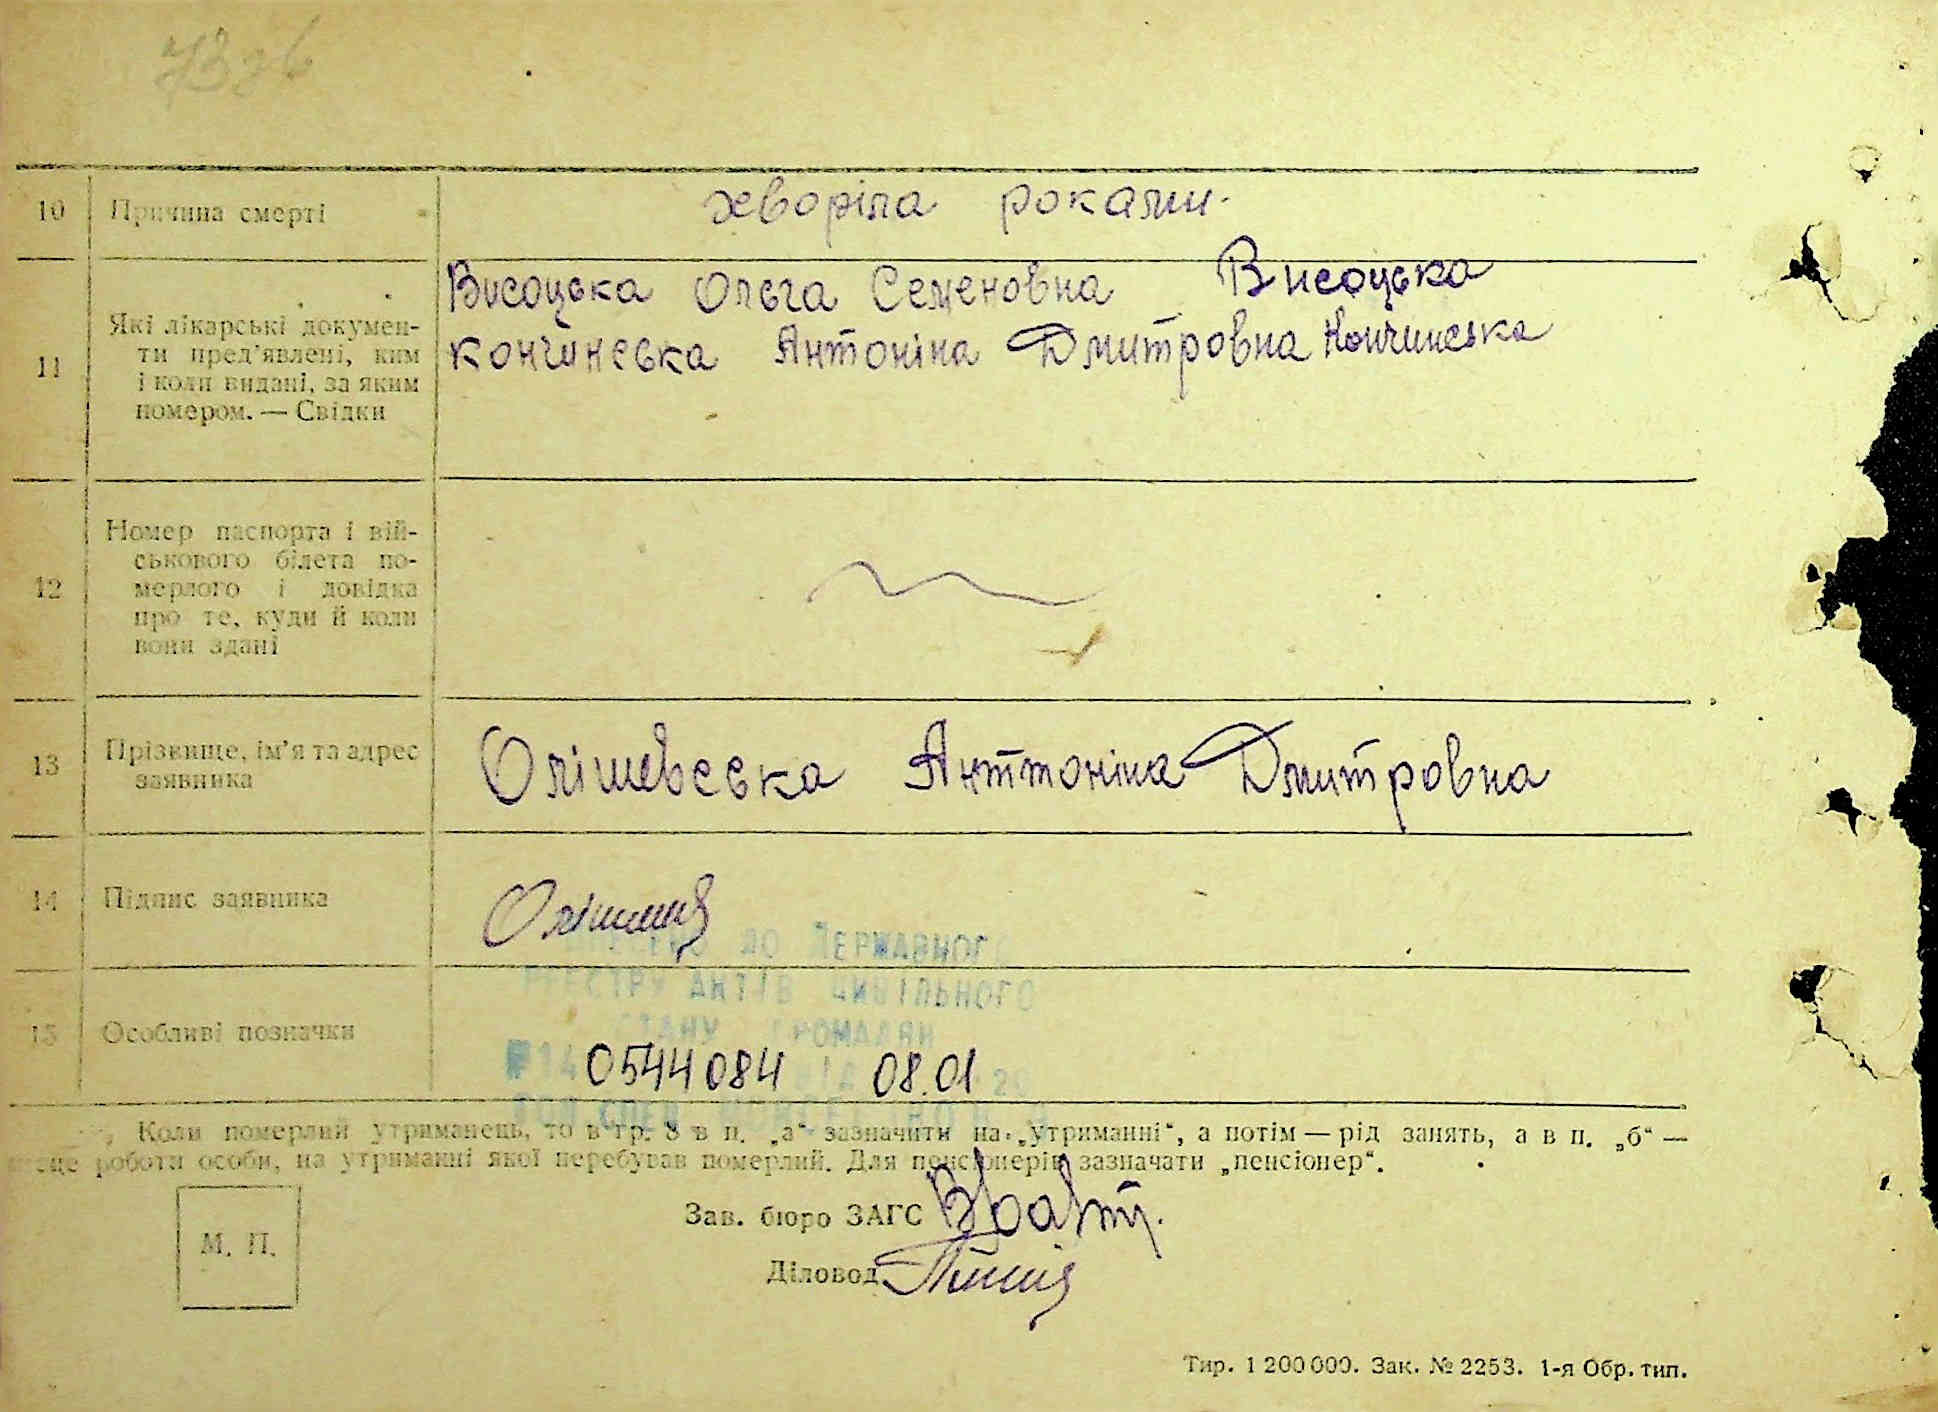 10 Причина смерті хворіла роками.
11 Які лікарські докумен-
ти пред'явлені, ким
і коли видані, за яким
номером. — Свідки
Висоцька Ольга Семеновна Висоцька
Кончинська Антоніна Дмитровна Кончинська
12 Номер паспорта і вій-
ськового білета по-
мерлого і довідка
про те, куди й коли
вони здані
13 Прізвище, ім'я та адрес
заявника
Олішевська Анттоніна Дмитровна
14 Підпис заявника
ДО ДЕРЖАВНОГО
РЕЄСТРУ АКТІВ ЦИВІЛЬНОГО
СТАНУ ГРОМАДЯН
15 Особливі позначки
14 0544084 ВІД 08.01 20
Коли померлий утриманець, то в гр. 8 в п. „а“ зазначити на „утриманні“, а потім — рід занять, а в п. „б“ —
місце роботи особи, на утриманні якої перебував померлий. Для пенсіонерів зазначати „пенсіонер“.
М. П.
Зав. бюро ЗАГС
Діловод
Тир. 1 200 000. Зак. № 2253. 1-я Обр. тип.